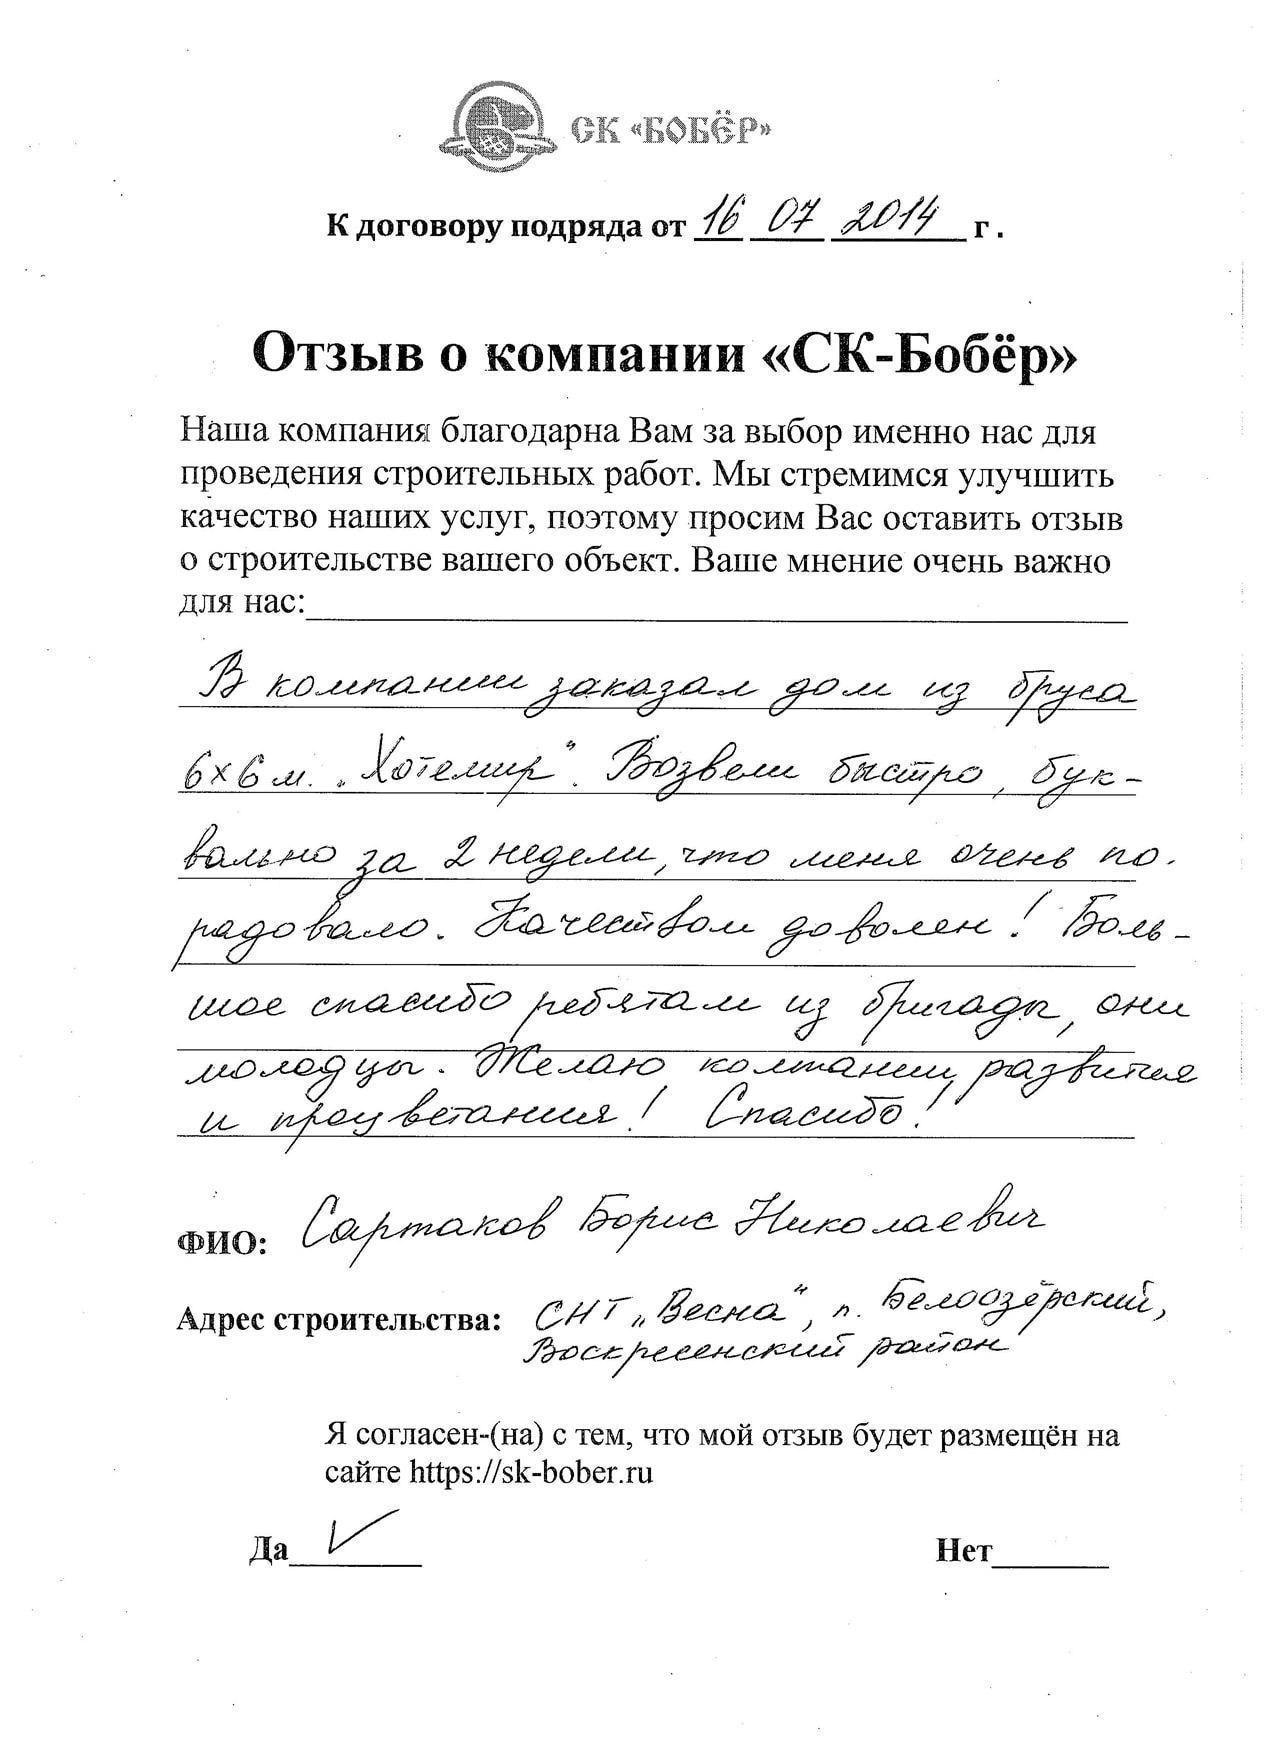 СК «БОБЁР»
К договору подряда от 16 07 2014 г .
Отзыв о компании «СК-Бобёр»
Наша компания благодарна Вам за выбор именно нас для
проведения строительных работ. Мы стремимся улучшить
качество наших услуг, поэтому просим Вас оставить отзыв
о строительстве вашего объект. Ваше мнение очень важно
для нас:
В компании заказал дом из бруса
6х6 м. „Хотемир". Возвели быстро, бук-
вально за 2 недели, что меня очень по-
радовало. Качеством доволен! Боль-
шое спасибо ребятам из бригады, они
молодцы. Желаю компании развития
и процветания! Спасибо!
ФИО: Сартаков Борис Николаевич
Адрес строительства: СНТ „Весна", п. Белоозёрский,
Воскресенский район
Я согласен-(на) с тем, что мой отзыв будет размещён на
сайте https://sk-bober.ru
Да Нет